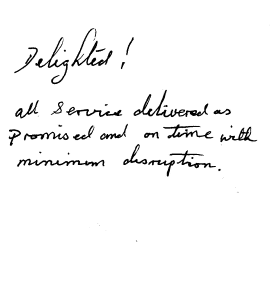 Delighted!
all service delivered as
promised and on time with
minimum disruption.